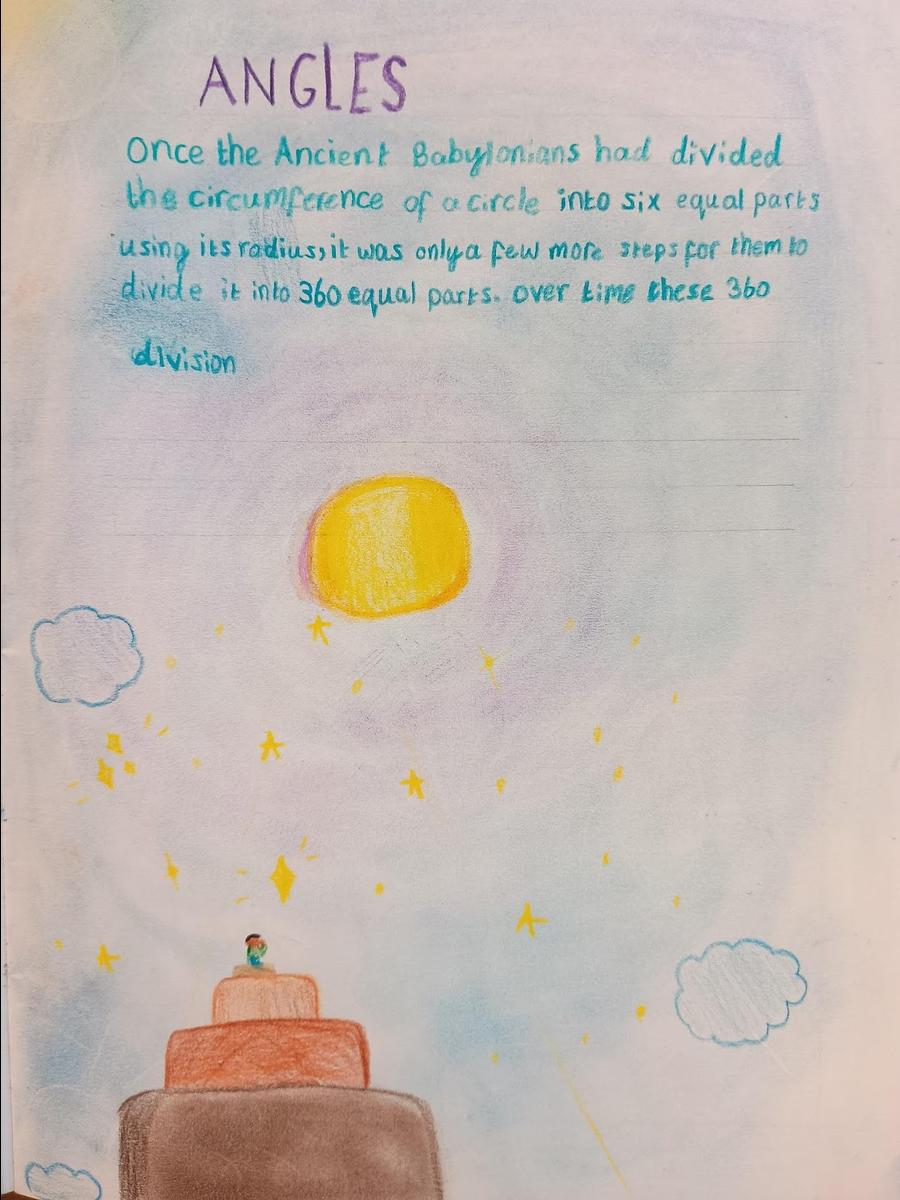 ANGLES
Once the Ancient Babylonians had divided
the circumference of a circle into six equal parts
using its radius, it was only a few more steps for them to
divide it into 360 equal parts. over time these 360
division